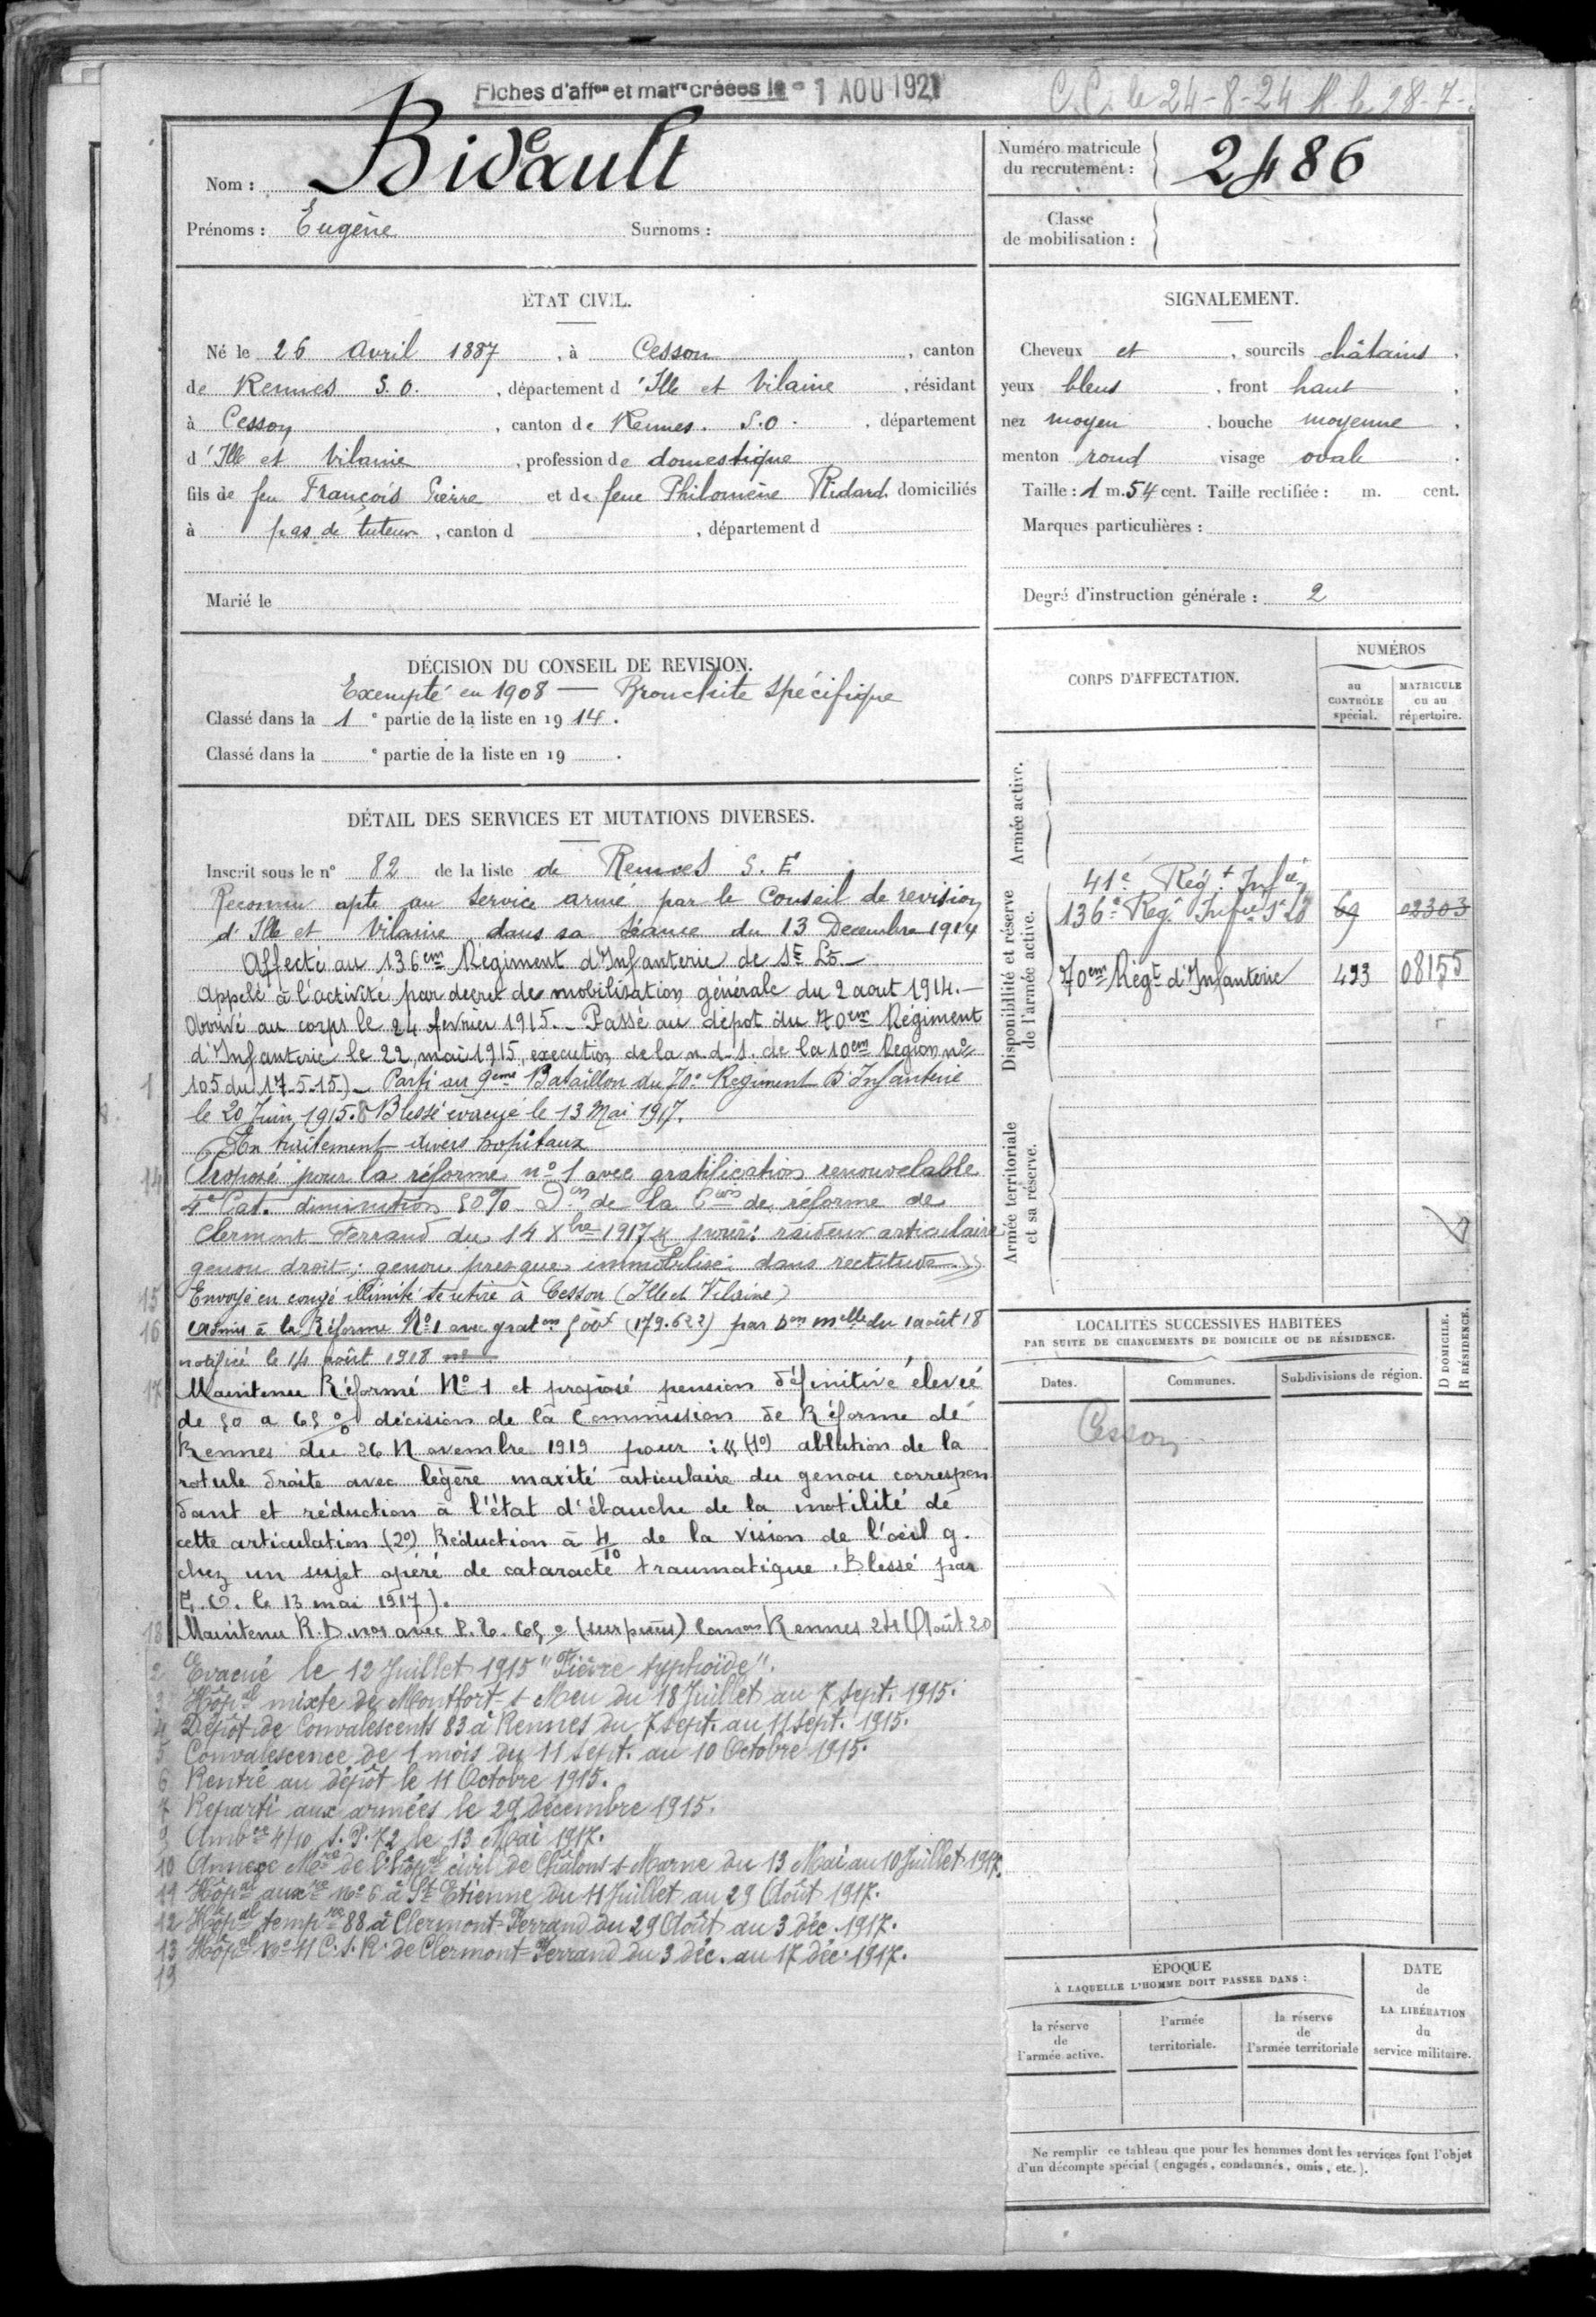 Fiches d'affon et matre créées le - 1 AOU 1921
C.C. le 24-8-24 R. le 28-7-
Nom : Bideault
Prénoms : Eugène Surnoms :
Numéro matricule du recrutement : 2486
Classe de mobilisation :
ÉTAT CIVIL.
Né le 26 Avril 1887, à Cesson, canton
de Rennes S.O., département d'Ille et Vilaine, résidant
à Cesson, canton de Rennes. S.O., département
d'Ille et Vilaine, profession de domestique
fils de feu François Pierre et de feue Philomène Ridard domiciliés
à pas de tuteur, canton d , département d
Marié le
SIGNALEMENT.
Cheveux et , sourcils châtains,
yeux bleus, front haut,
nez moyen, bouche moyenne,
menton rond visage ovale.
Taille : 1 m. 54 cent. Taille rectifiée : m. cent.
Marques particulières :
Degré d'instruction générale : 2
DÉCISION DU CONSEIL DE REVISION.
Exempté en 1908 — Bronchite spécifique
Classé dans la 1e partie de la liste en 1914.
Classé dans la e partie de la liste en 19 .
DÉTAIL DES SERVICES ET MUTATIONS DIVERSES.
Inscrit sous le n° 82 de la liste de Rennes S. E
Reconnu apte au service armé par le Conseil de revision
d'Ille et Vilaine dans sa séance du 13 Decembre 1914
Affecté au 136em Régiment d'Infanterie de St Lô —
Appelé à l'activité par decret de mobilisation générale du 2 aout 1914. —
Arrivé au corps le 24 fevrier 1915. _ Passé au dépot du 70em Régiment
d'Infanterie le 22, mai 1915, execution de la n.d.s. de la 10em Region no
1 105 du 17-5-15) _ Parti au 9eme Bataillon du 70e Regiment d'Infanterie
le 20 Juin 1915. 8 Blessé évacué le 13 Mai 1917.
En traitement divers hopitaux
14 Proposé pour la réforme no 1 avec gratification renouvelable
4e Cat. diminution 50% Don de la Con de réforme de
Clermont Ferrand du 14 Xbre 1917 pour : raideur articulaire
genou droit ; genou presque immobilisé dans rectitude »
15 Envoyé en congé illimité se retire à Cesson (Ille et Vilaine)
16 Admis à la Réforme No 1 avec graton 500f (179.622) par Don melle du 1 août 18
notifiée le 14 août 1918
17 Maintenu Réformé No 1 et proposé pension définitive élevée
de 50 a 65% décision de la Commission de Réforme de
Rennes du 26 Novembre 1919 pour : « (1o) ablation de la
rotule droite avec légère maxité articulaire du genou correspon
dant et réduction à l'état d'ébauche de la motilité de
cette articulation (2o) Réduction à 4/10 de la vision de l'oeil g.
chez un sujet opéré de cataracte traumatique. Blessé par
E.O. le 13 mai 1917).
18 Maintenu R.D. no1 avec P.T. 65% Comon Rennes 24 Août 20
2 Evacué le 12 Juillet 1915 "Fièvre typhoïde".
3 Hôpal mixte de Montfort s Meu du 18 Juillet au 7 sept. 1915.
4 Dépôt de Convalescents 83 à Rennes du 7 sept. au 11 sept. 1915.
5 Convalescence de 1 mois du 11 sept. au 10 Octobre 1915.
6 Rentré au dépôt le 11 Octobre 1915.
7 Reparti aux armées le 29 décembre 1915.
9 Ambce 4/10 S.P. 72 le 13 Mai 1917.
10 Annexe Mre de l'hôpal civil de Châlons s Marne du 13 Mai au 10 Juillet 1917.
11 Hôpal auxre No 6 à St Etienne du 11 Juillet au 29 Août 1917.
12 Hôpal tempre 88 à Clermont-Ferrand du 29 Août au 3 déc. 1917.
13 Hôpal No 41 C.S.R. de Clermont-Ferrand du 3 déc. au 17 déc. 1917.
19
CORPS D'AFFECTATION.
NUMÉROS
au CONTRÔLE spécial.
MATRICULE ou au répertoire.
Armée active.
Disponibilité et réserve de l'armée active.
41e Régt Infie
136e Regt Infie St Lô 69 02303
70em Régt d'Infanterie 493 08155
Armée territoriale et sa réserve.
LOCALITÉS SUCCESSIVES HABITÉES
PAR SUITE DE CHANGEMENTS DE DOMICILE OU DE RÉSIDENCE.
D DOMICILE. R RÉSIDENCE.
Dates. Communes. Subdivisions de région.
Cesson
ÉPOQUE
À LAQUELLE L'HOMME DOIT PASSER DANS :
la réserve de l'armée active.
l'armée territoriale.
la réserve de l'armée territoriale
DATE de LA LIBÉRATION du service militaire.
Ne remplir ce tableau que pour les hommes dont les services font l'objet
d'un décompte spécial (engagés, condamnés, omis, etc.).